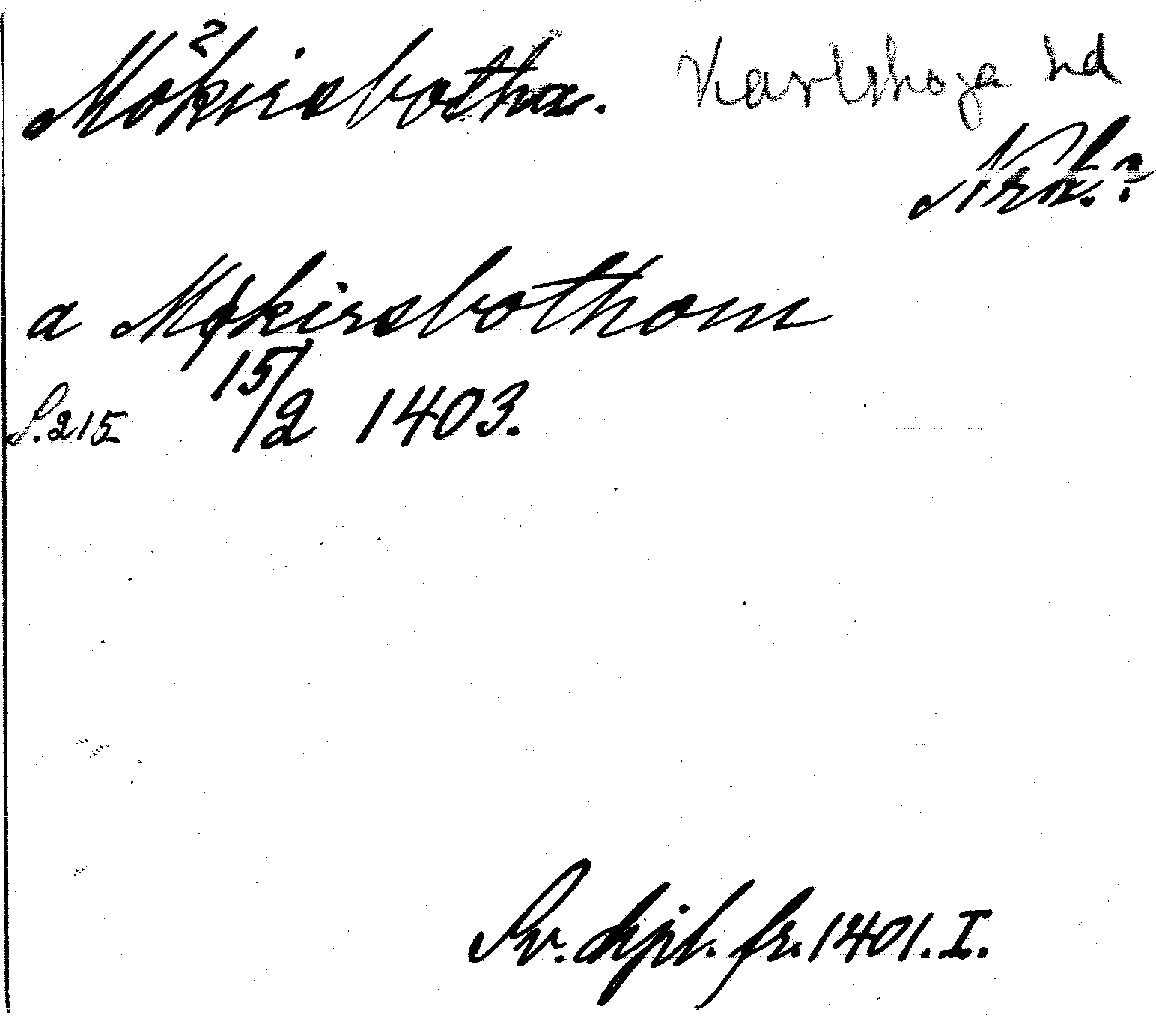 Mökirsbotha. Karlskoga hd
Nrk.?
a Møkirsbothom
S. 215 15/2 1403.
Sv. dipl. fr. 1401. I.